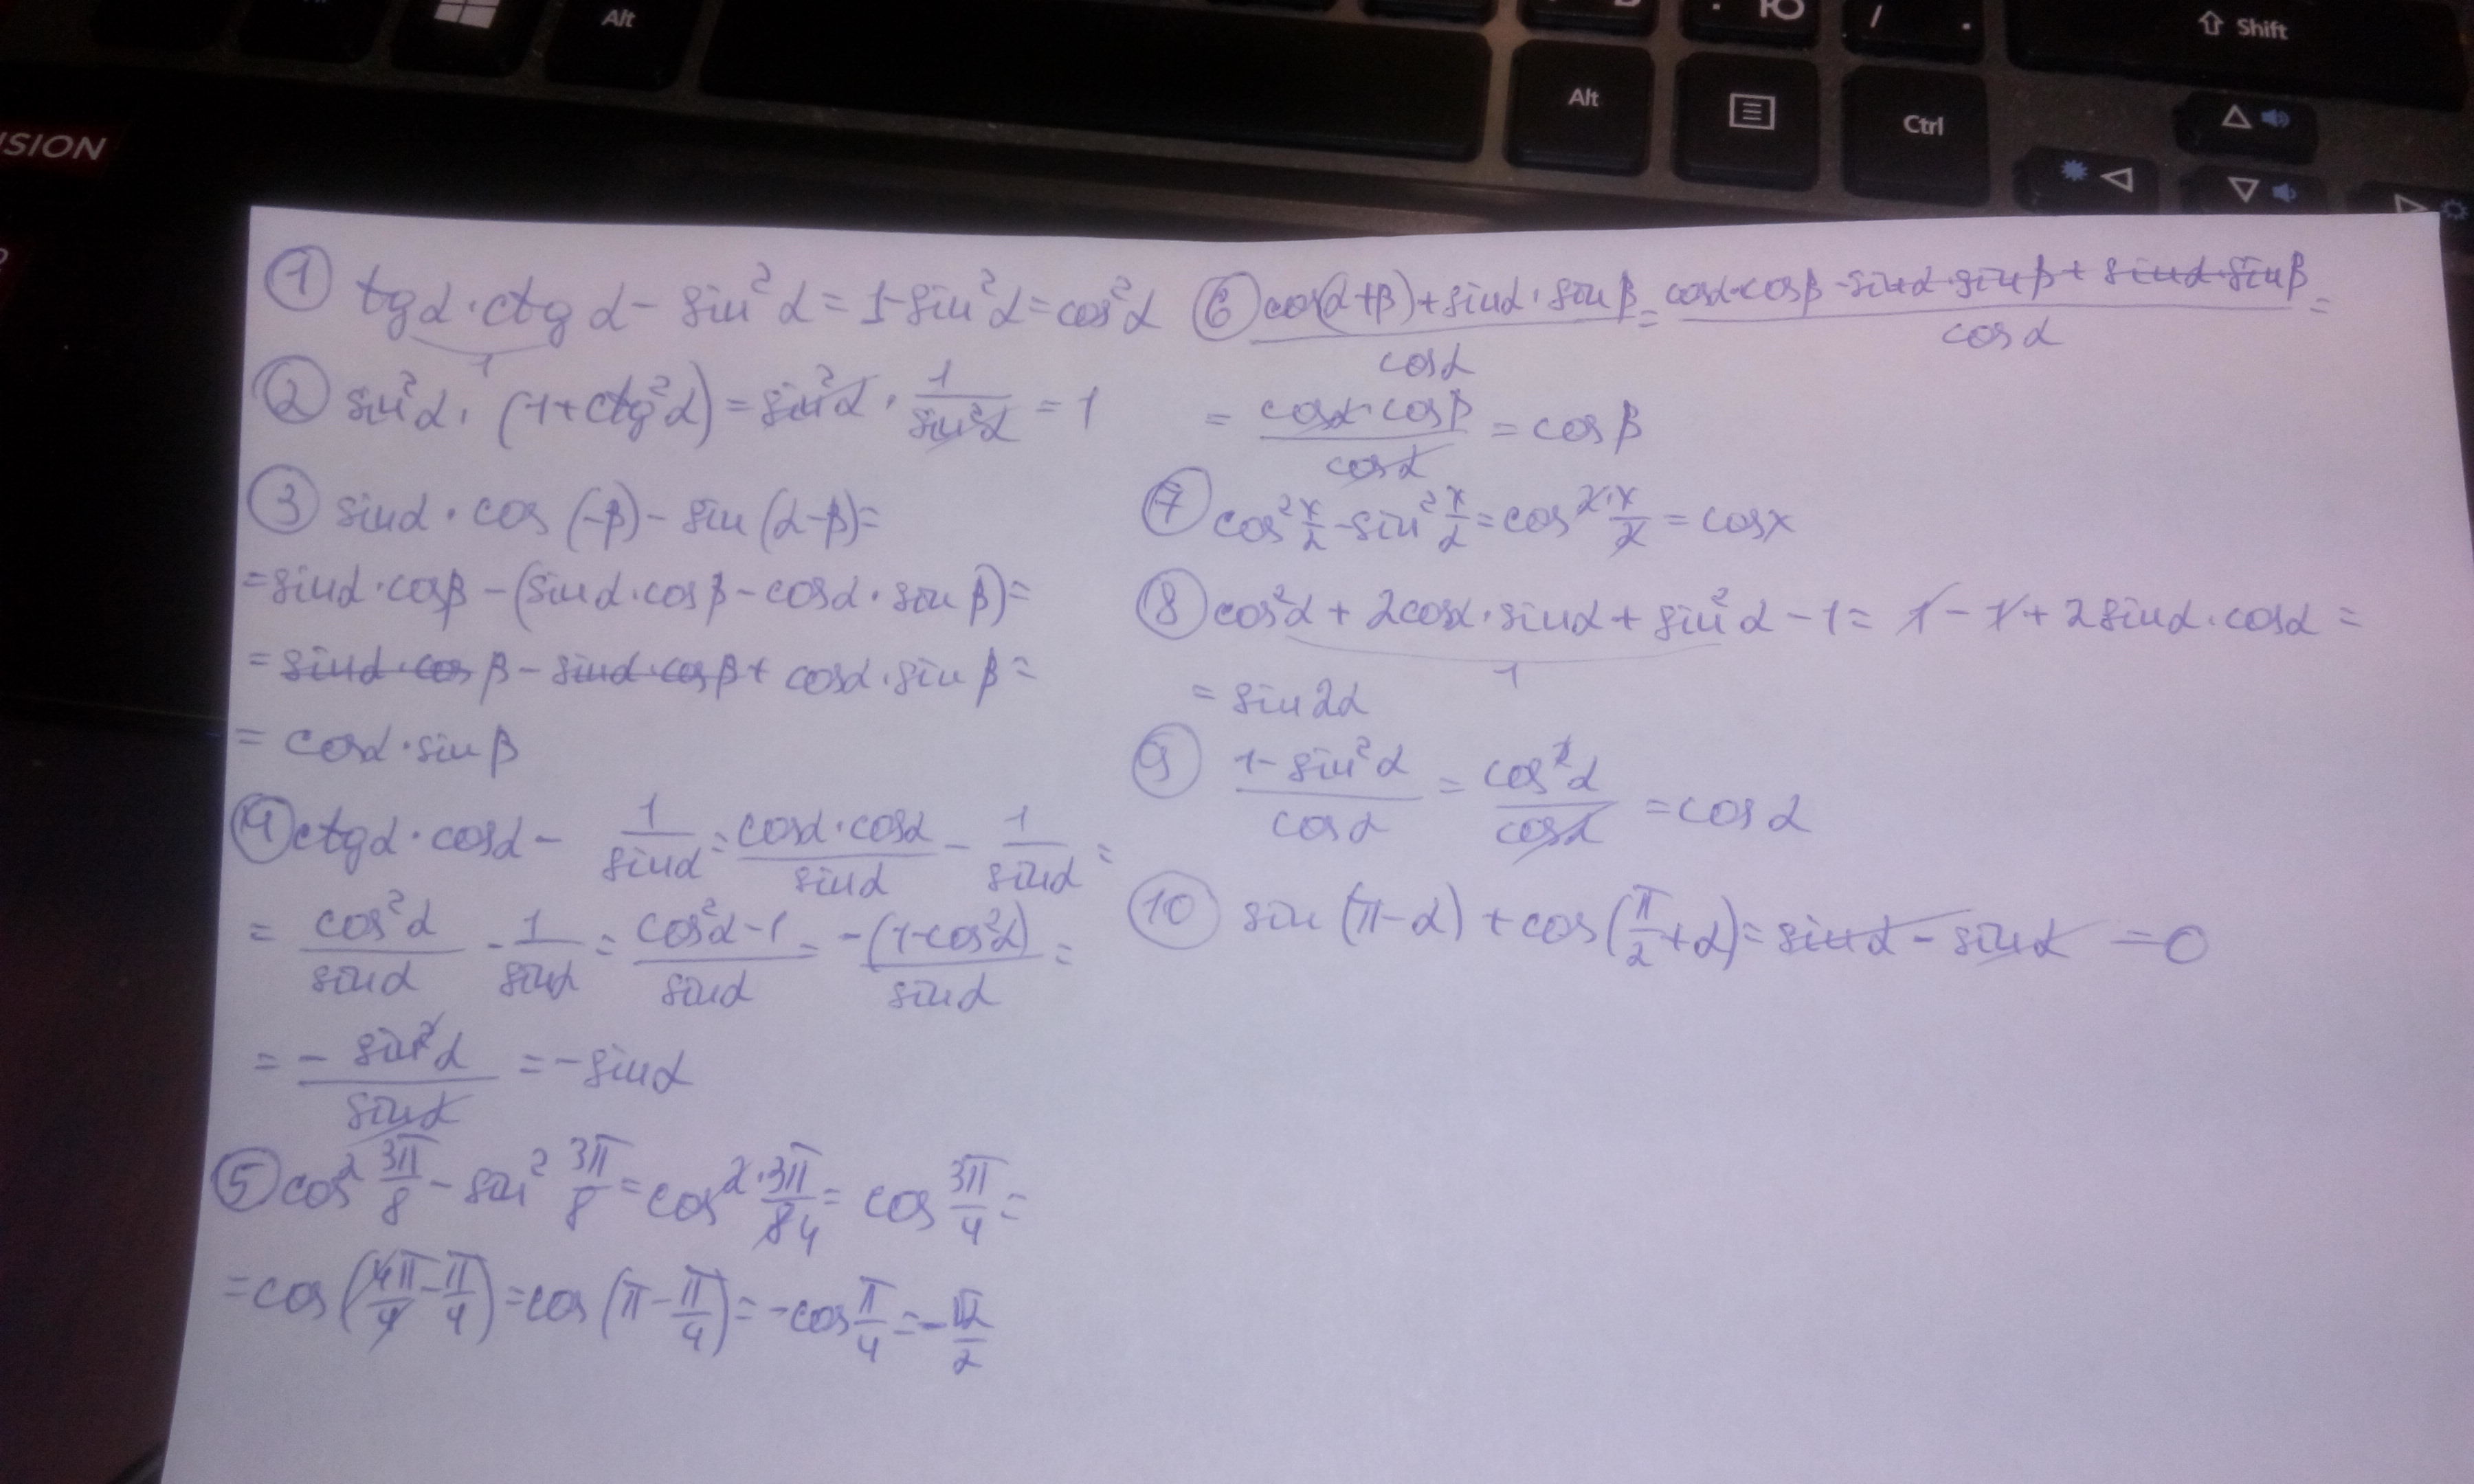 Alt
Ю
/ .
Shift
Alt
Ctrl
ISION
① tgα·ctgα - sin²α = 1-sin²α = cos²α
1
② sin²α · (1+ctg²α) = sin²α · 1/sin²α = 1
③ sinα · cos(-β) - sin(α-β) =
= sinα·cosβ - (sinα·cosβ - cosα·sinβ) =
= sinα·cosβ - sinα·cosβ + cosα·sinβ =
= cosα·sinβ
④ ctgα·cosα - 1/sinα = cosα·cosα/sinα - 1/sinα =
= cos²α/sinα - 1/sinα = cos²α-1/sinα = -(1-cos²α)/sinα =
= - sin²α/sinα = -sinα
⑤ cos² 3π/8 - sin² 3π/8 = cos 2·3π/8 4 = cos 3π/4 =
= cos(4π/4 - π/4) = cos(π - π/4) = -cos π/4 = -√2/2
⑥ cos(α+β)+sinα·sinβ/cosα = cosα·cosβ - sinα·sinβ + sinα·sinβ/cosα =
= cosα·cosβ/cosα = cosβ
⑦ cos² x/2 - sin² x/2 = cos 2·x/2 = cosx
⑧ cos²α + 2cosα·sinα + sin²α - 1 = 1 - 1 + 2sinα·cosα =
1
= sin2α
⑨ 1-sin²α/cosα = cos²α/cosα = cosα
⑩ sin(π-α) + cos(π/2+α) = sinα - sinα = 0